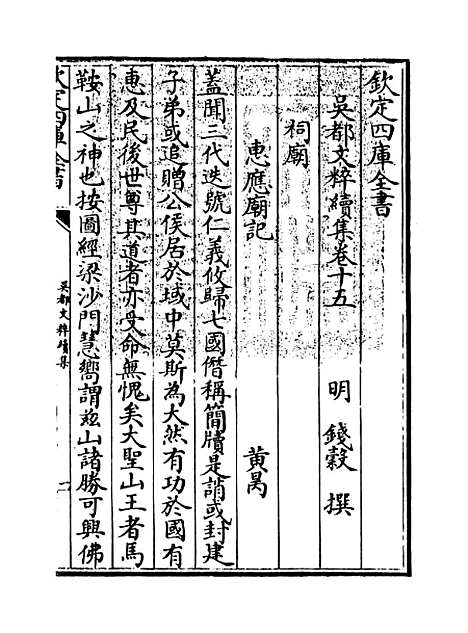 欽定四庫全書
吳都文粹續集卷十五
明 錢穀 撰
祠廟
惠應廟記
黃昺
蓋聞三代迭號仁義攸歸七國僭稱簡牘是誚或封建
子弟或追贈公侯居於域中莫斯為大然有功於國有
恵及民後世尊其道者亦受命無愧矣大聖山王者馬
鞍山之神也按圖經梁沙門慧嚮謂兹山諸勝可興佛
欽定四庫全書
吳都文粹續集